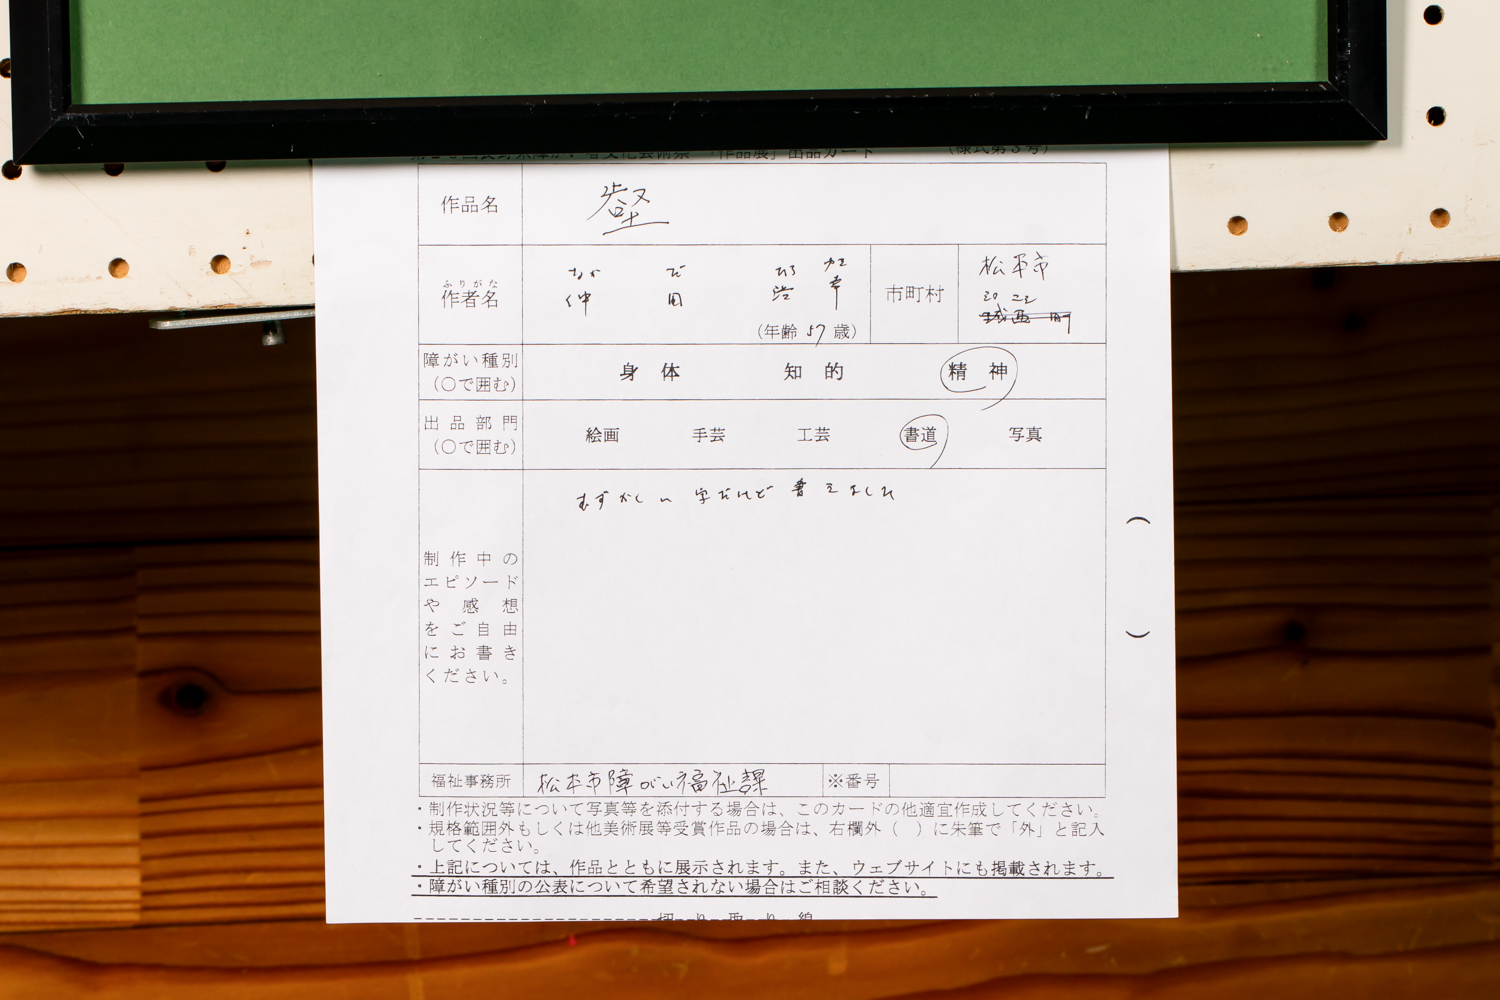 「作品展」出品カード (様式第3号)
作品名
ふりがな
作者名 仲 田 浩 幸
なか だ ひろ ゆき
(年齢 57 歳)
市町村 松本市
障がい種別
(○で囲む) 身体 知的 精神
出品部門
(○で囲む) 絵画 手芸 工芸 書道 写真
むずかしい 字だけど 書えました
制作中の
エピソード
や感想
をご自由
にお書き
ください。
( )
福祉事務所 松本市障がい福祉課 ※番号
・制作状況等について写真等を添付する場合は、このカードの他適宜作成してください。
・規格範囲外もしくは他美術展等受賞作品の場合は、右欄外( )に朱筆で「外」と記入
してください。
・上記については、作品とともに展示されます。また、ウェブサイトにも掲載されます。
・障がい種別の公表について希望されない場合はご相談ください。
切り取り線